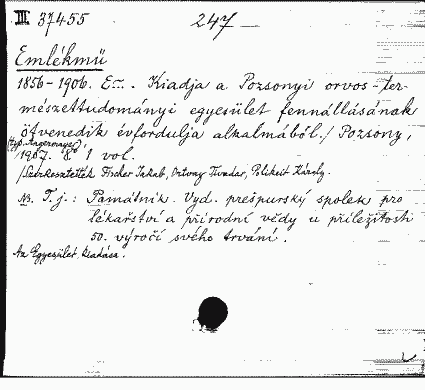 III 37455 247 —
Emlékmű
1856-1906. E... . Kiadja a Pozsonyi orvos-ter-
mészettudományi egyesület fennállásának
ötvenedik évfordulja alkalmából./ Pozsony,
(typ. Angermayer)
1907. 8° 1 vol.
/Szerkesztették Fischer Jakab, Ortvay Tivadar, Polikeit Károly.
NB. T.j.: Památnik. Vyd. prešpurský spolek pro
lékařství a přírodní vědy u příležitosti
50. výročí svého trvání.
Az Egyesület kiadása.